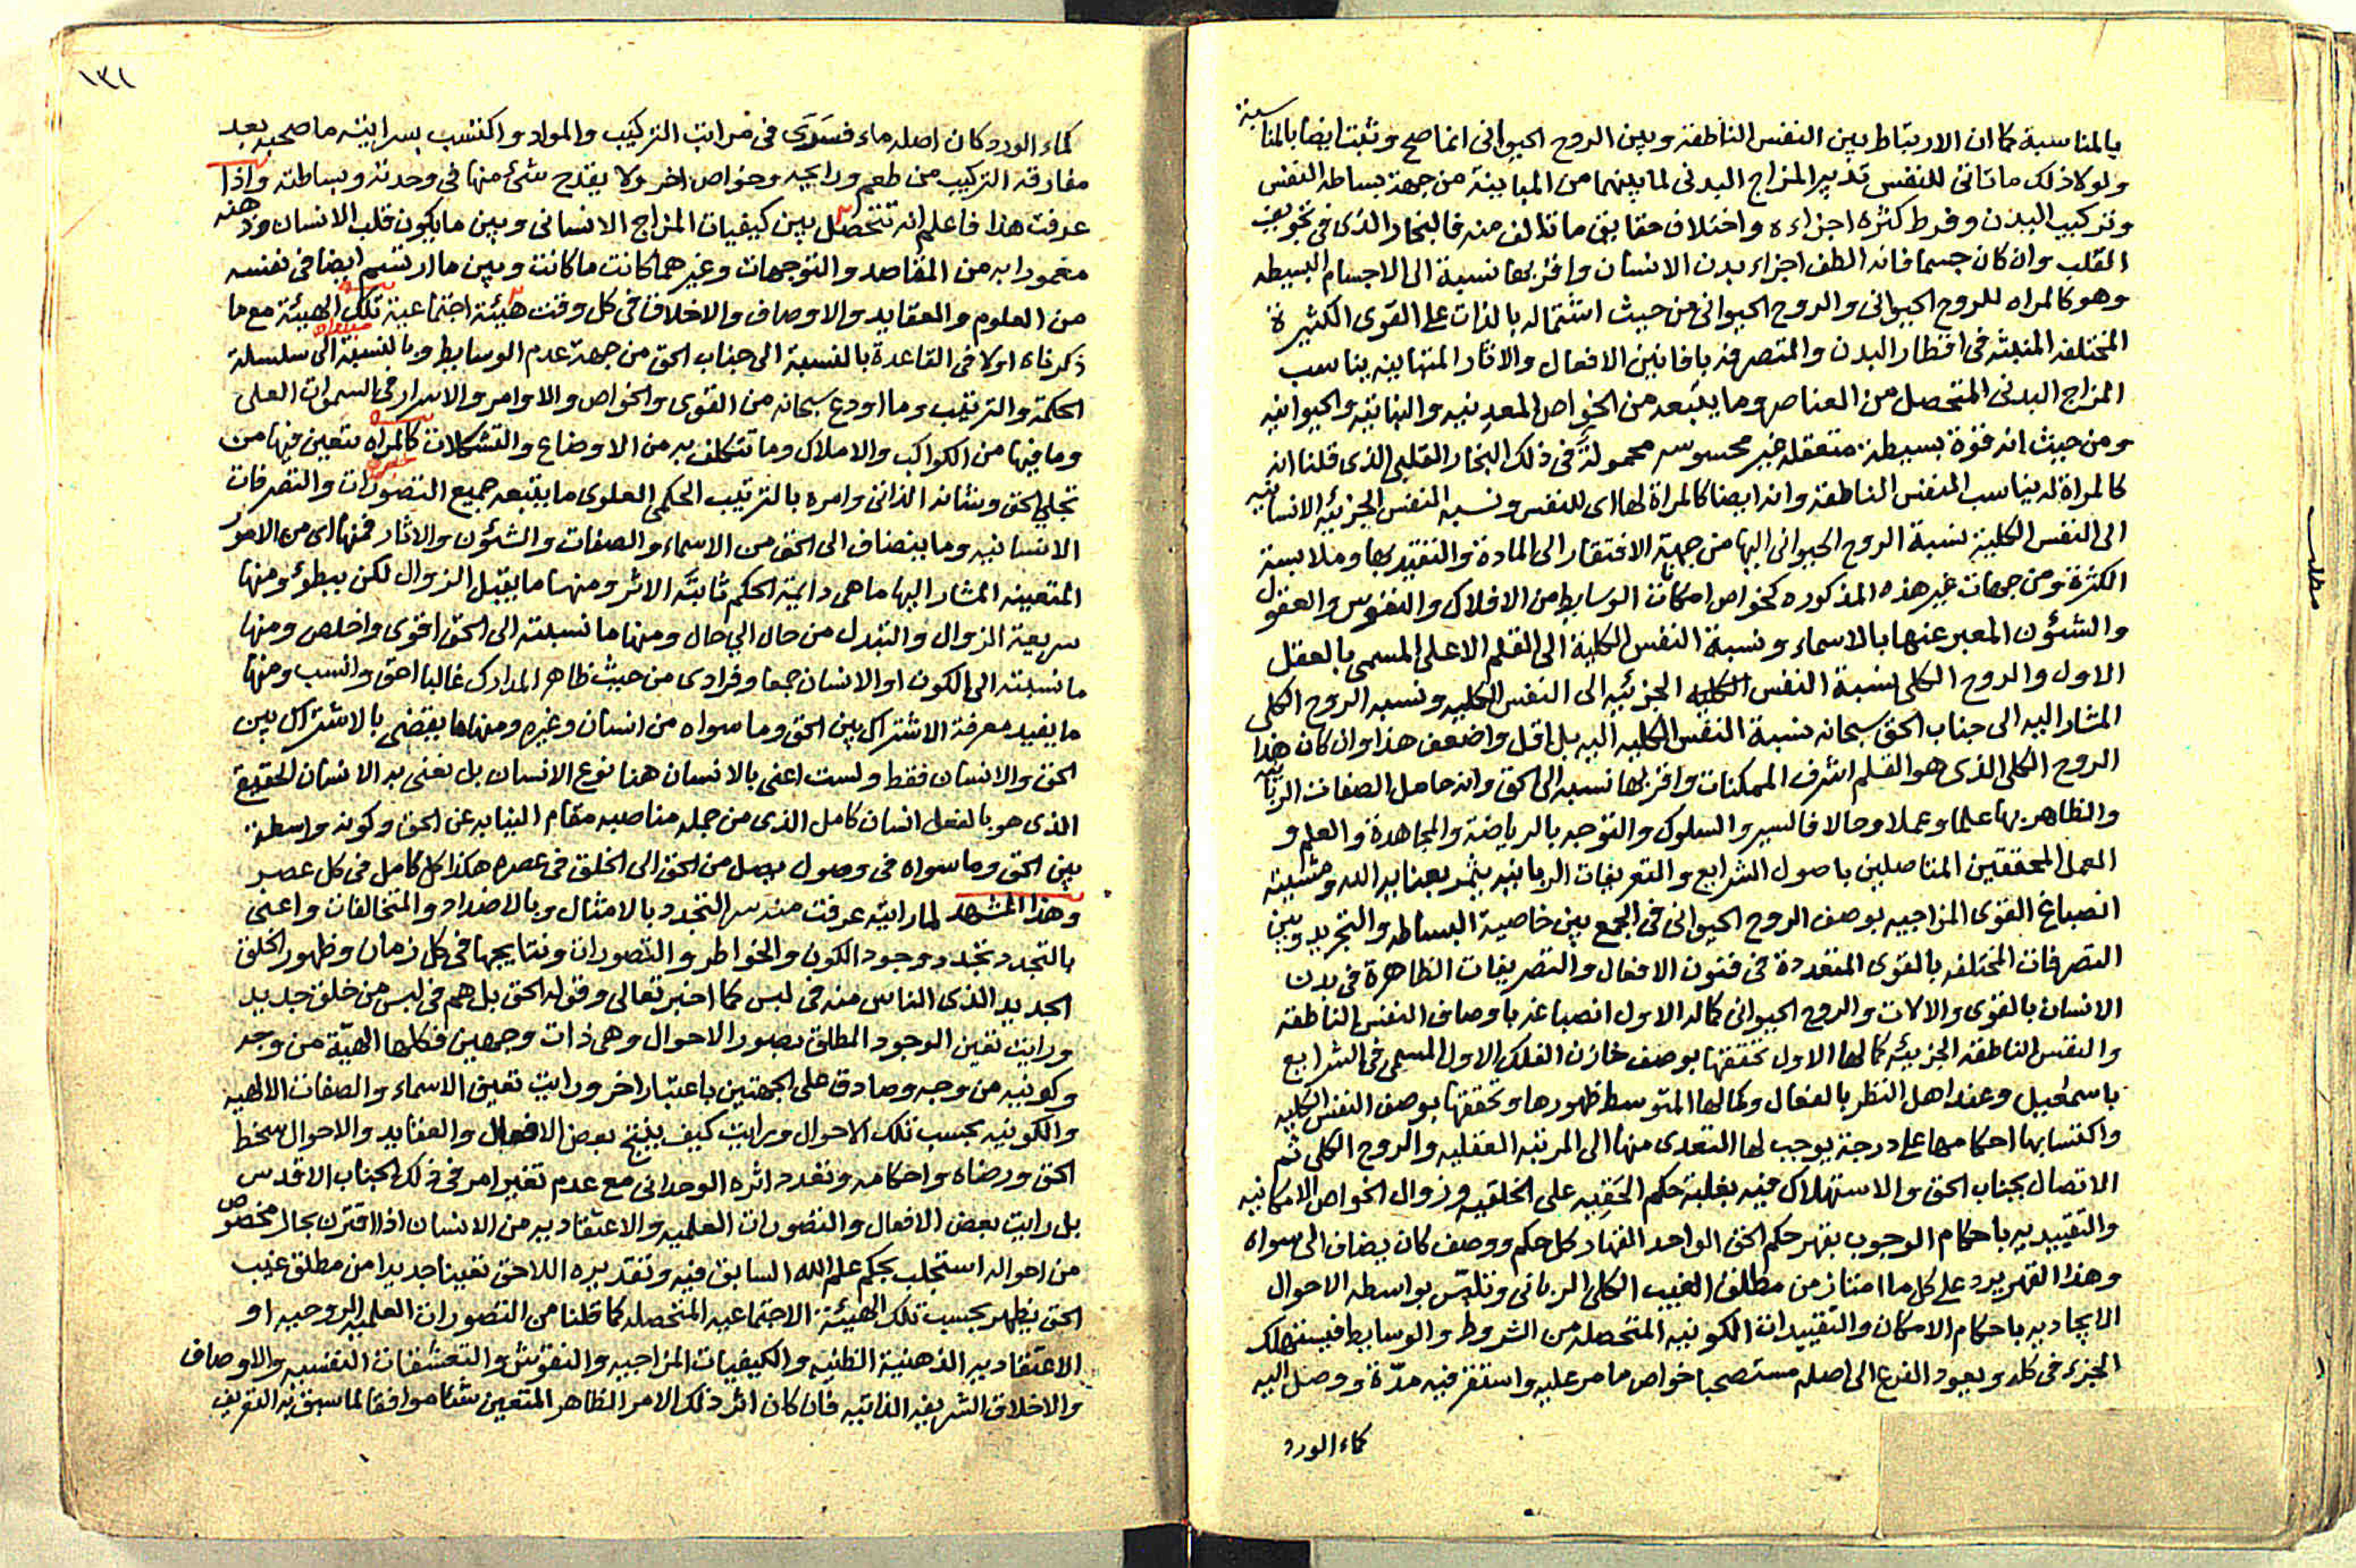 بالمناسبة كما ان الارتباط بين النفس الناطقة وبين الروح الحيوانى انما صح وثبت ايضا بالمناسبة
ولولا ذلك ما تاتى للنفس تدبير المزاج البدنى لما بينهما من المباينة من جهة بساطه النفس
وتركيب البدن وفرط كثره اجزاءه واختلاف حقايق ما تالف منه فالبخار الذى فى تجويف
القلب وان كان جسما فانه الطف اجزاء بدن الانسان واقربها نسبة الى الاجسام البسيطه
وهو كالمراه للروح الحيوانى والروح الحيوانى من حيث اشتماله بالذات على القوى الكثيرة
المختلفه المنبثه فى اقطار البدن والمتصرفه بافانين الافعال والاثار المتباينه يناسب
المزاج البدنى المتحصل من العناصر وما يتبعه من الخواص المعدنيه والنباتيه والحيوانيه
ومن حيث انه قوة بسيطة متعقله غير محسوسه محمولة فى ذلك البخار القلبى الذى قلنا انه
كالمراة له يناسب النفس الناطقه وانه ايضا كالمراة لها اى للنفس ونسبه النفس الجزئيه الانسانيه
الى النفس الكلية نسبة الروح الحيوانى اليها من جهة الافتقار الى المادة والتقيد بها وملابسة
الكثرة ومن جهات غير هذه المذكوره كخواص امكانات الوسايط من الافلاك والنفوس والعقول
والشئون المعبر عنها بالاسماء ونسبة النفس الكلية الى القلم الاعلى المسمى بالعقل
الاول والروح الكلى نسبة النفس الكليه الجزئيه الى النفس الكليه ونسبه الروح الكلى
المشار اليه الى جناب الحق سبحانه نسبة النفس الكليه اليه بل اقل واضعف هذا وان كان هذا
الروح الكلى الذى هو القلم اشرف الممكنات واقربها نسبه الى الحق وانه حامل الصفات الربانيه
والظاهر بها علما وعملا وحالا فالسير والسلوك والتوجه بالرياضة والمجاهدة والعلم و
العمل المحققين المتاصلين باصول الشرايع والتعريفات الربانيه يثمر بعنايه الله ومشيته
انصباغ القوى المزاجيه بوصف الروح الحيوانى فى الجمع بين خاصية البساطه والتجريد وبين
التصرفات المختلفه بالقوى المتعددة فى فنون الافعال والتصريفات الظاهرة فى بدن
الانسان بالقوى والالات والروح الحيوانى كماله الاول انصباغه باوصاف النفس الناطقه
والنفس الناطقه الجزئيه كمالها الاول تحققها بوصف خازن الفلك الاول المسمى فى الشرايع
باسمعيل وعند اهل النظر بالفعال وكمالها المتوسط ظهورها وتحققها بوصف النفس الكليه
واكتسابها احكامها على درجة يوجب لها التعدى منها الى المرتبه العقليه والروح الكلى ثم
الاتصال بجناب الحق والاستهلاك فيه بغلبة حكم الحقيه على الخلقيه وزوال الخواص الامكانيه
والتقييديه باحكام الوجوب بقهر حكم الحق الواحد القهار كل حكم ووصف كان يضاف الى سواه
وهذا القهر يرد على كل ما امتاز من مطلق الغيب الكلى الربانى وتلبس بواسطه الاحوال
الايجاديه باحكام الامكان والتقييدات الكونيه المتحصله من الشروط والوسايط فيستهلك
الجزء فى كله ويعود الفرع الى اصله مستصحبا خواص ما مر عليه واستقر فيه مدة ووصل اليه
كماء الورد
مطلب
١٣٢
كماء الورد كان اصله ماء فسرى فى مراتب التركيب والمواد واكتسب بسرايته ما صحبه بعد
مفارقة التركيب من طعم ورايحه وخواص اخر ولا يقدح شئ منها فى وحدته وبساطته واذا
عرفت هذا فاعلم انه تتحصل بين كيفيات المزاج الانسانى وبين ما يكون قلب الانسان وذهنه
مغمورا به من المقاصد والتوجهات وغيرهما كانت ما كانت وبين ما ارتسم ايضا فى نفسه
من العلوم والعقايد والاوصاف والاخلاق فى كل وقت هيئة اجتماعية تلك الهيئة مع ما
ذكرناه اولا فى القاعدة بالنسبة الى جناب الحق من جهة عدم الوسايط وبالنسبة الى سلسلة
الحكمة والترتيب وما اودع سبحانه من القوى والخواص والاوامر والاسرار فى السموات العلى
وما فيها من الكواكب والاملاك وما تتكلف به من الاوضاع والتشكلات كالمراه يتعين فيها من
تجلى الحق وشانه الذاتى وامره بالترتيب الحكمى العلوى ما يتبعه جميع التصورات والتصرفات
الانسانيه وما ينضاف الى الحق من الاسماء والصفات والشئون والاثار فمنها اى من الامور
المتعينه المشار اليها ما هى دايمة الحكم ثابتة الاثر ومنها ما يقبل الزوال لكن ببطؤ ومنها
سريعة الزوال والتبدل من حال الى حال ومنها ما نسبته الى الحق اقوى واخلص ومنها
ما نسبته الى الكون او الانسان جمعا وفرادى من حيث ظاهر المدارك غالبا احق وانسب ومنها
ما يفيد معرفة الاشتراك بين الحق وما سواه من انسان وغيره ومنها ما يقضى بالاشتراك بين
الحق والانسان فقط ولست اعنى بالانسان هنا نوع الانسان بل نعنى به الانسان الحقيقى
الذى هو بالفعل انسان كامل الذى من جمله مناصبه مقام النيابه عن الحق وكونه واسطة
بين الحق وما سواه فى وصول ما يصل من الحق الى الخلق فى عصره هكذا كل كامل فى كل عصر
وهذا المشهد لما رايته عرفت منه سر التجدد بالامثال وبالاضداد والمتخالفات واعنى
بالتجدد تجدد وجود الكون والخواطر والتصورات ونتايجها فى كل زمان وظهور الخلق
الجديد الذى الناس منه فى لبس كما اخبر تعالى وقوله الحق بل هم فى لبس من خلق جديد
ورايت تعين الوجود المطلق بصور الاحوال وهى ذات وجهين فكلها الهية من وجه
وكونيه من وجه وصادق على الجهتين باعتبار اخر ورايت تعين الاسماء والصفات الالهيه
والكونيه بحسب تلك الاحوال ورايت كيف ينتج بعض الافعال والعقايد والاحوال سخط
الحق ورضاه واحكامه وتعدد اثره الوحدانى مع عدم تغير امر فى ذلك الجناب الاقدس
بل رايت بعض الافعال والتصورات العلميه والاعتقاديه من الانسان اذا اقترن بحال مخصوص
من احواله استجلب بحكم علم الله السابق فيه وتقديره اللاحق تعينا جديدا من مطلق غيب
الحق يظهر بحسب تلك الهيئة الاجتماعيه المتحصله كما قلنا من التصورات العلميه الروحيه او
الاعتقاديه الذهنية الظنيه والكيفيات المزاجيه والنقوش والتعشقات النفسيه والاوصاف
والاخلاق الشريفه الذاتيه فان كان اثر ذلك الامر الظاهر المتعين شئا موافقا لما سبق به التعريف